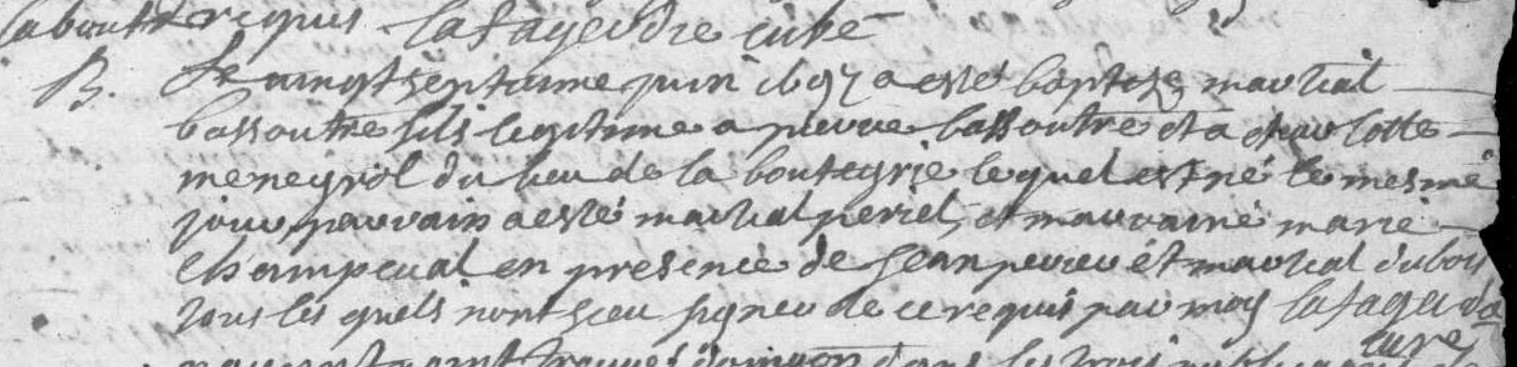 requis Lafageydie curé
B. Le vingt septieme juin 1697 a esté baptize martial
bassoutre fils legitime a pierre bassoutre et a charlotte
meneyrol du lieu de la bouteyrie lequel est né le mesme
jour parrain a esté martial perret, et marraine marie
Champeval en presence de Jean perier et martial dubois
tous les quels n'ont sceu signer de ce requis par moy Lafageydie
curé
dans les trois